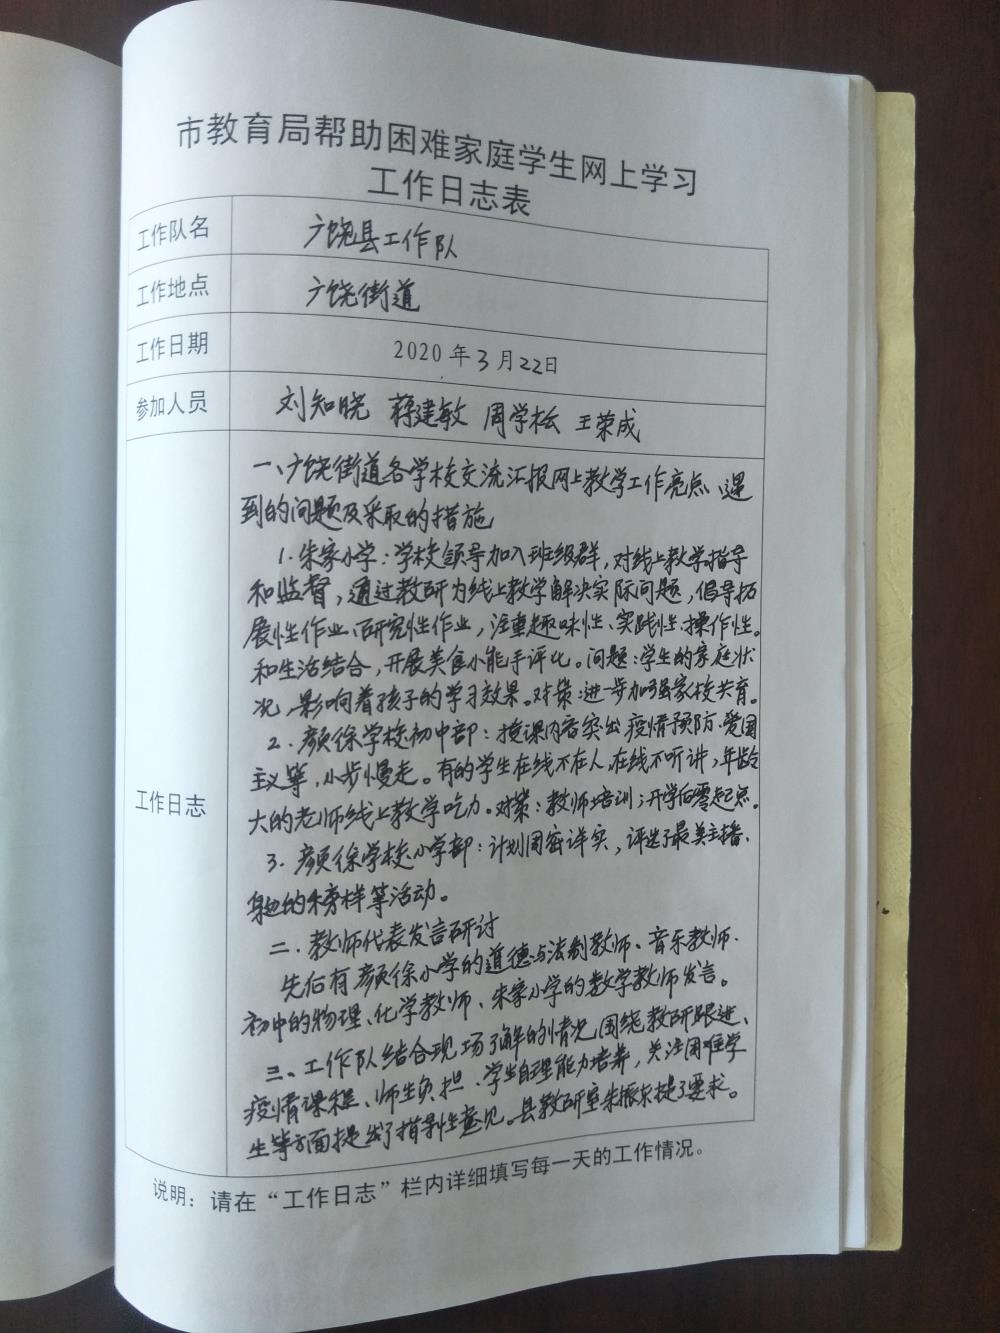 市教育局帮助困难家庭学生网上学习
工作日志表
工作队名 广饶县工作队
工作地点 广饶街道
工作日期 2020年3月22日
参加人员 刘知晓 蒋建敏 周学松 王荣成
工作日志
一、广饶街道各学校交流汇报网上教学工作亮点、遇
到的问题及采取的措施
1.朱家小学：学校领导加入班级群，对线上教学指导
和监督，通过教研为线上教学解决实际问题，倡导拓
展性作业、研究性作业，注重趣味性、实践性、操作性。
和生活结合，开展美食小能手评比。问题：学生的家庭状
况，影响着孩子的学习效果。对策：进一步加强家校共育。
2.颜徐学校初中部：授课内容突出疫情预防、爱国
主义等，小步慢走。有的学生在线不在人，在线不听讲，年龄
大的老师线上教学吃力。对策：教师培训；开学后零起点。
3.颜徐学校小学部：计划周密详实，评选了最美主播、
身边的榜样等活动。
二.教师代表发言研讨
先后有颜徐小学的道德与法制教师、音乐教师.
初中的物理、化学教师、朱家小学的数学教师发言。
三、工作队结合现场了解的情况，围绕教研跟进、
疫情课程、师生负担、学生自理能力培养，关注困难学
生等方面提出了指导性意见。县教研室朱振东提了要求。
说明：请在“工作日志”栏内详细填写每一天的工作情况。